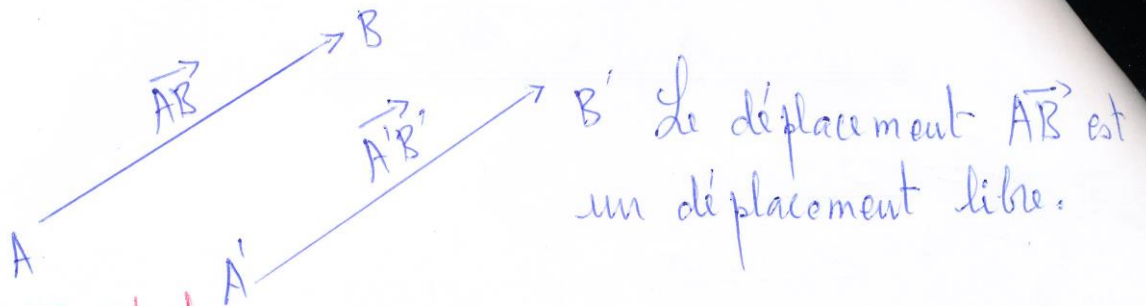 B
$\overrightarrow{AB}$
$\overrightarrow{A'B'}$
B' Le déplacement $\overrightarrow{AB}$ est
un déplacement libre.
A
A'